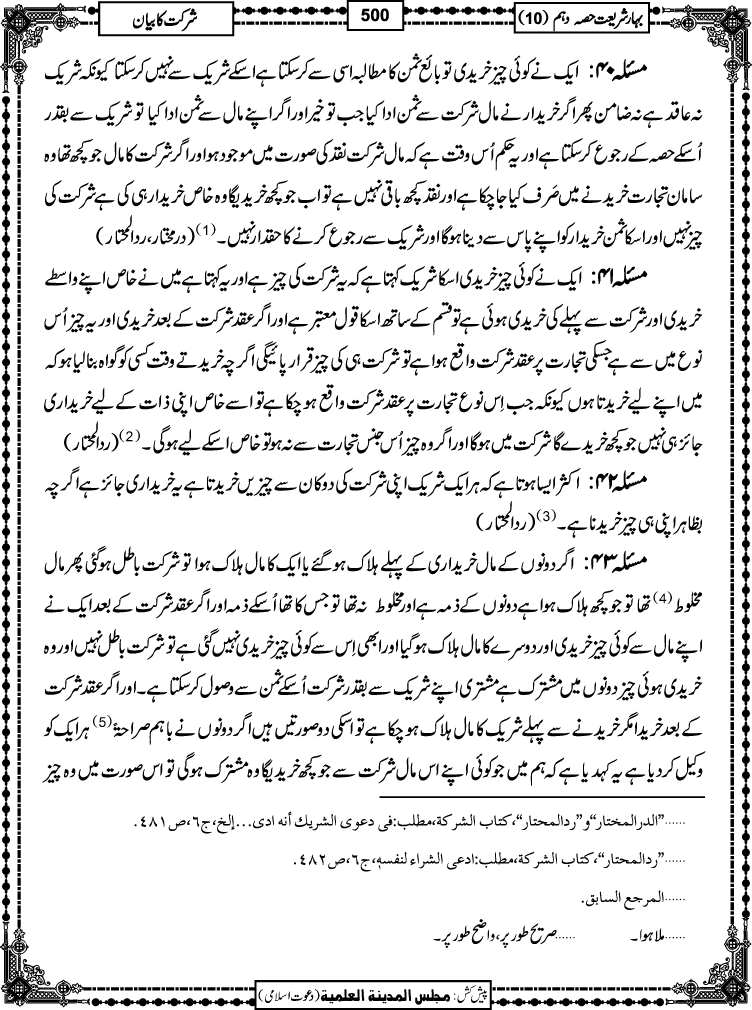 بہارِ شریعت حصہ دہم (10)
500
شرکت کا بیان
مسئلہ ۴۰: ایک نے کوئی چیز خریدی تو بائع ثمن کا مطالبہ اسی سے کرسکتا ہے اسکے شریک سے نہیں کرسکتا کیونکہ شریک
نہ عاقد ہے نہ ضامن پھر اگر خریدار نے مال شرکت سے ثمن ادا کیا جب تو خیر اور اگر اپنے مال سے ثمن ادا کیا تو شریک سے بقدر
اُسکے حصہ کے رجوع کرسکتا ہے اور یہ حکم اُس وقت ہے کہ مال شرکت نقد کی صورت میں موجود ہو اور اگر شرکت کا مال جو کچھ تھا وہ
سامان تجارت خریدنے میں صَرف کیا جاچکا ہے اور نقد کچھ باقی نہیں ہے تو اب جو کچھ خریدیگا وہ خاص خریدار ہی کی ہے شرکت کی
چیز نہیں اور اسکا ثمن خریدار کو اپنے پاس سے دینا ہوگا اور شریک سے رجوع کرنے کا حقدار نہیں۔(1) (درمختار، ردالمحتار)
مسئلہ ۴۱: ایک نے کوئی چیز خریدی اسکا شریک کہتا ہے کہ یہ شرکت کی چیز ہے اور یہ کہتا ہے میں نے خاص اپنے واسطے
خریدی اور شرکت سے پہلے کی خریدی ہوئی ہے تو قسم کے ساتھ اسکا قول معتبر ہے اور اگر عقد شرکت کے بعد خریدی اور یہ چیز اُس
نوع میں سے ہے جسکی تجارت پر عقد شرکت واقع ہوا ہے تو شرکت ہی کی چیز قرار پائیگی اگرچہ خریدتے وقت کسی کو گواہ بنالیا ہو کہ
میں اپنے لیے خریدتا ہوں کیونکہ جب اِس نوع تجارت پر عقد شرکت واقع ہوچکا ہے تو اسے خاص اپنی ذات کے لیے خریداری
جائز ہی نہیں جو کچھ خریدے گا شرکت میں ہوگا اور اگر وہ چیز اُس جنس تجارت سے نہ ہو تو خاص اسکے لیے ہوگی۔(2) (ردالمحتار)
مسئلہ ۴۲: اکثر ایسا ہوتا ہے کہ ہر ایک شریک اپنی شرکت کی دوکان سے چیزیں خریدتا ہے یہ خریداری جائز ہے اگرچہ
بظاہر اپنی ہی چیز خریدنا ہے۔(3) (ردالمحتار)
مسئلہ ۴۳: اگر دونوں کے مال خریداری کے پہلے ہلاک ہوگئے یا ایک کا مال ہلاک ہوا تو شرکت باطل ہوگئی پھر مال
مخلوط(4) تھا تو جو کچھ ہلاک ہوا ہے دونوں کے ذمہ ہے اور مخلوط نہ تھا تو جس کا تھا اُسکے ذمہ اور اگر عقد شرکت کے بعد ایک نے
اپنے مال سے کوئی چیز خریدی اور دوسرے کا مال ہلاک ہوگیا اور ابھی اِس سے کوئی چیز خریدی نہیں گئی ہے تو شرکت باطل نہیں اور وہ
خریدی ہوئی چیز دونوں میں مشترک ہے مشتری اپنے شریک سے بقدر شرکت اُسکے ثمن سے وصول کرسکتا ہے۔ اور اگر عقد شرکت
کے بعد خریدا مگر خریدنے سے پہلے شریک کا مال ہلاک ہوچکا ہے تو اسکی دو صورتیں ہیں اگر دونوں نے باہم صراحۃً(5) ہر ایک کو
وکیل کردیا ہے یہ کہدیا ہے کہ ہم میں جو کوئی اپنے اس مال شرکت سے جو کچھ خریدیگا وہ مشترک ہوگی تو اس صورت میں وہ چیز
......"الدرالمختار" و"ردالمحتار"، کتاب الشرکة، مطلب: فی دعوی الشریك أنه ادی...إلخ، ج٦، ص٤٨١.
......"ردالمحتار"، کتاب الشرکة، مطلب: ادعی الشراء لنفسہٖ، ج٦، ص٤٨٢.
......المرجع السابق.
......ملا ہوا۔ ......صریح طور پر، واضح طور پر۔
پیش کش: مجلس المدینة العلمیة (دعوت اسلامی)